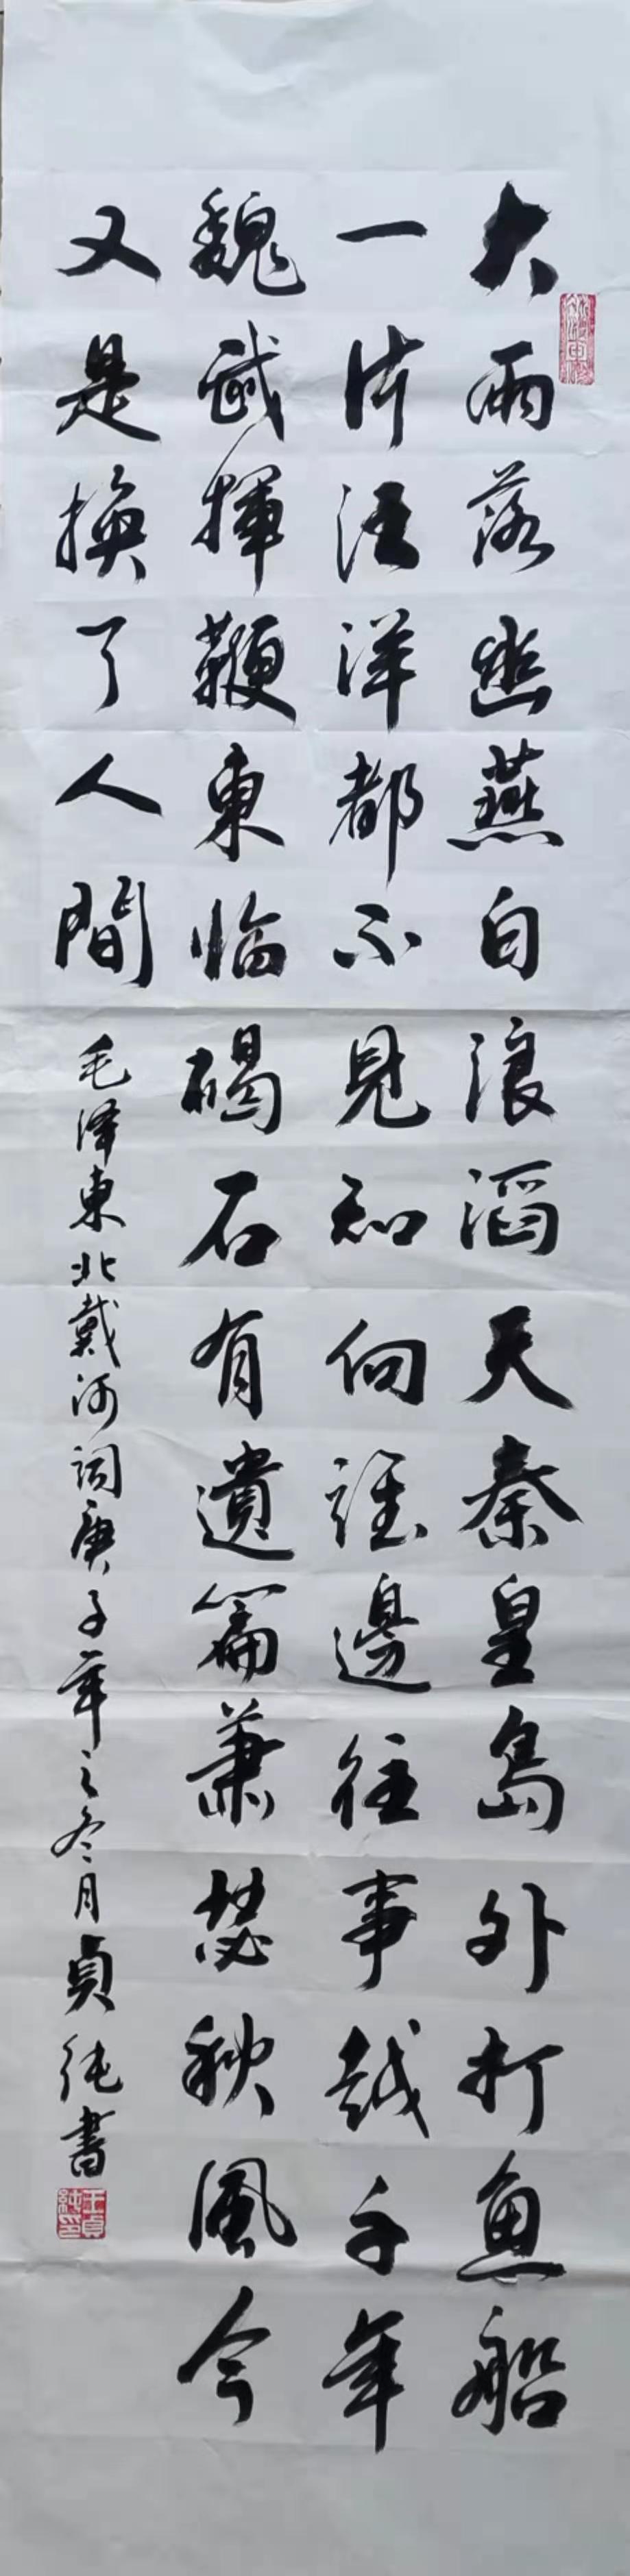 大雨落幽燕白浪滔天秦皇島外打魚船
一片汪洋都不見知向誰邊往事越千年
魏武揮鞭東臨碣石有遺篇蕭瑟秋風今
又是換了人間
毛澤東北戴河词庚子年之冬月貞純書
王貞純印